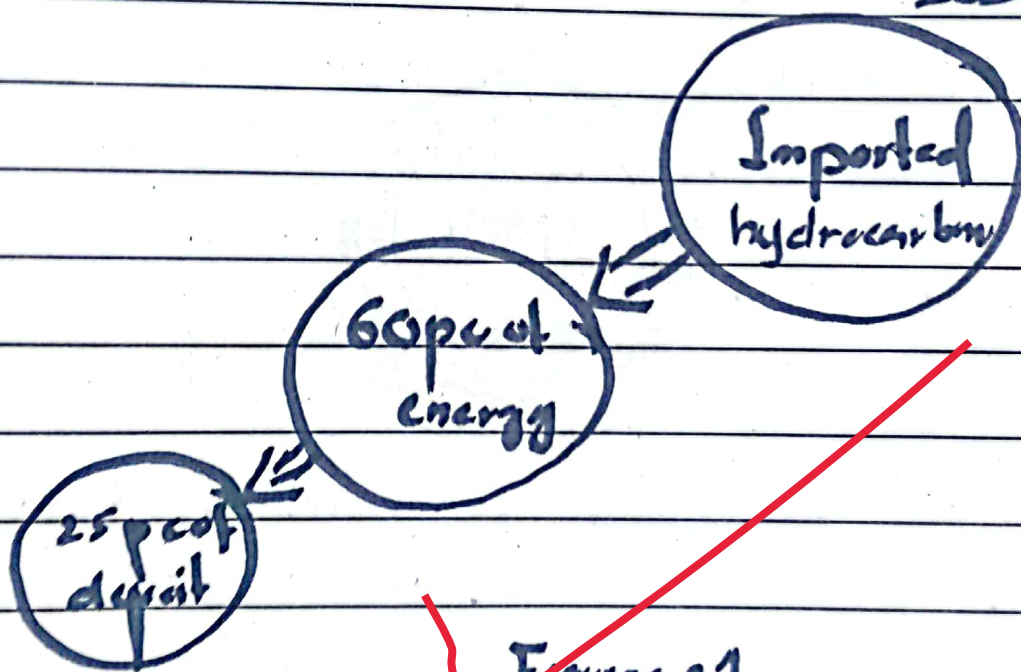 Imported
hydrocarbon
60pc of
energy
25pc of